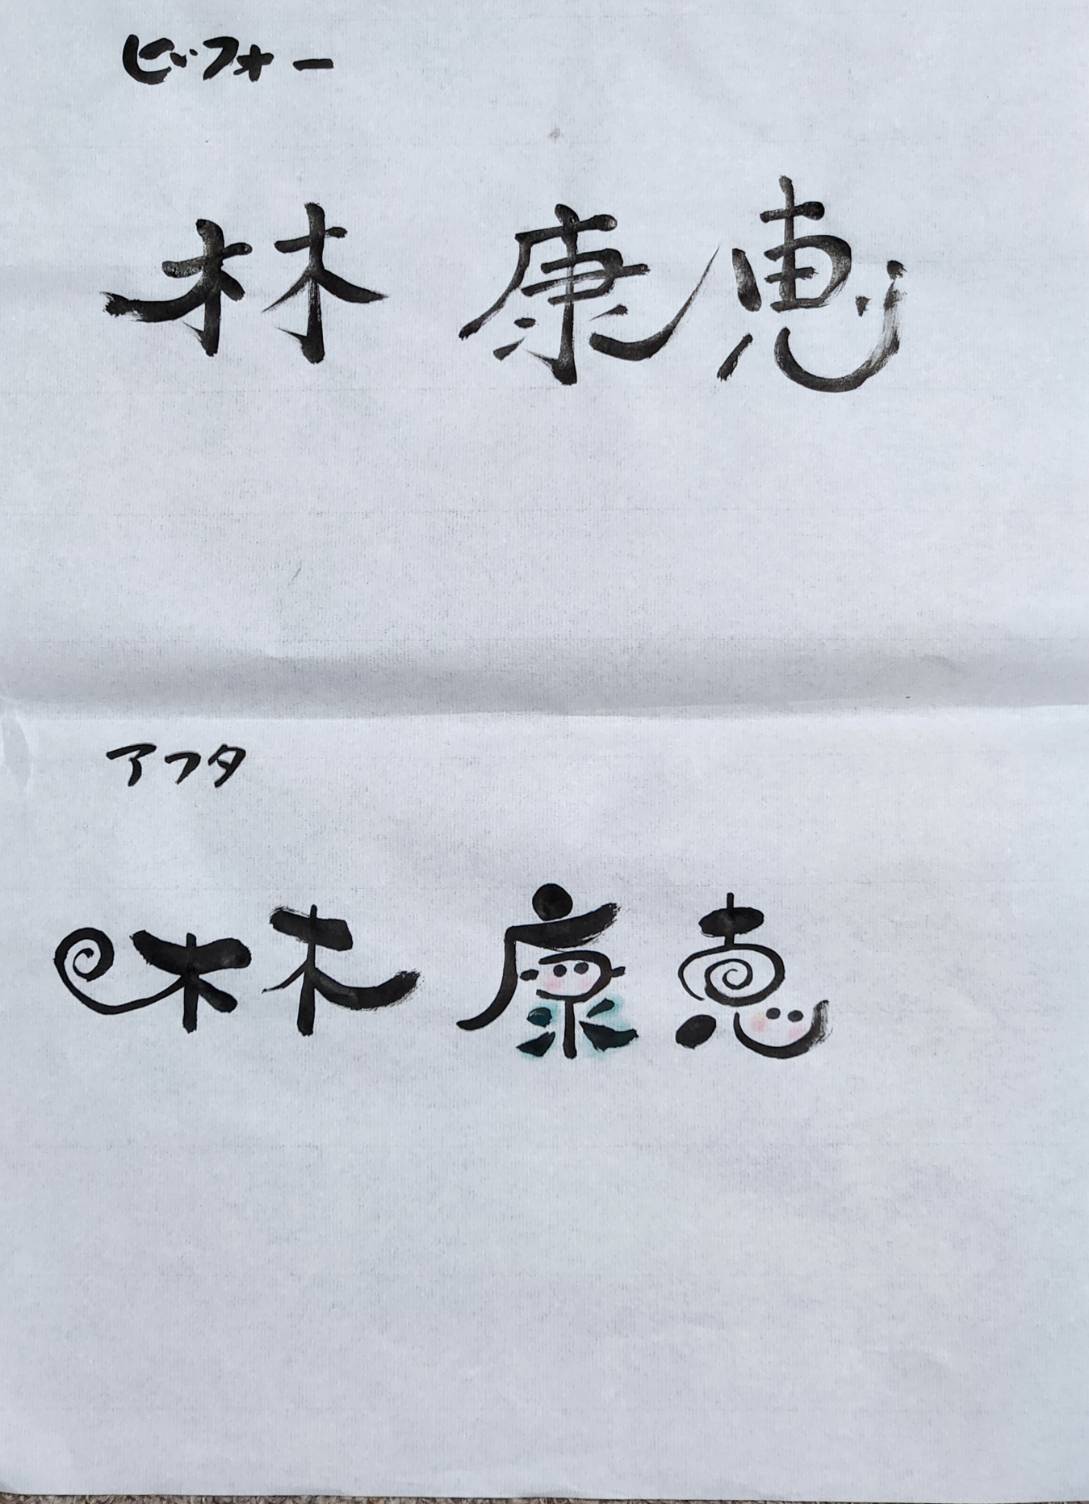 ビッフォー
林 康恵
アフタ
林 康恵